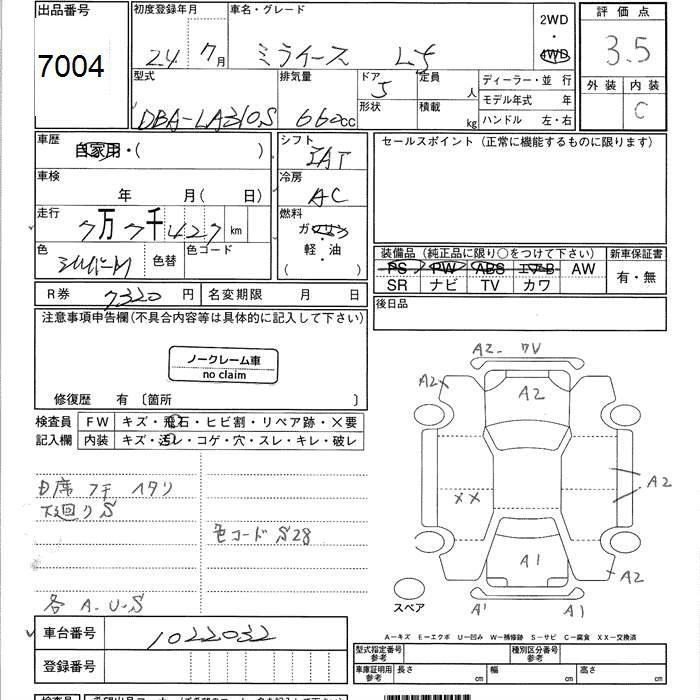 出品番号
7004
初度登録年月
24 7月
車名・グレード
ミライース Lf
2WD
・
4WD
評価点
3.5
外装 内装
C
型式
DBA-LA310S
排気量
660cc
ドア 5
形状
定員 人
積載 kg
ディーラー・並 行
モデル年式 年
ハンドル 左・右
車歴
自家用・( )
車検
年 月( 日)
走行
7万7千427 km
色
シルバーM
色替
色コード
シフト
IAT
冷房
AC
燃料
ガソリン
・
軽・油
( )
セールスポイント(正常に機能するものに限ります)
装備品(純正品に限り○をつけて下さい)
PS PW ABS エアB AW
SR ナビ TV カワ
新車保証書
有・無
R券 7320 円
名変期限 月 日
後日品
注意事項申告欄(不具合内容等は具体的に記入して下さい)
ノークレーム車
no claim
修復歴 有〔箇所 〕
検査員
記入欄
FW キズ・飛石・ヒビ割・リペア跡・×要
内装 キズ・汚レ・コゲ・穴・スレ・キレ・破レ
下廻りS
色コードS28
各 A.U.S
A2. 7V
A2
A2
XX
A2
A1
A2
A1
A1
スペア
A―キズ E―エクボ U―凹み W―補修跡 S―サビ C―腐食 XX―交換済
車台番号 1022032
登録番号
型式指定番号
参考
種別区分番号
参考
車庫証明用
参考
長さ cm
幅 cm
高さ cm